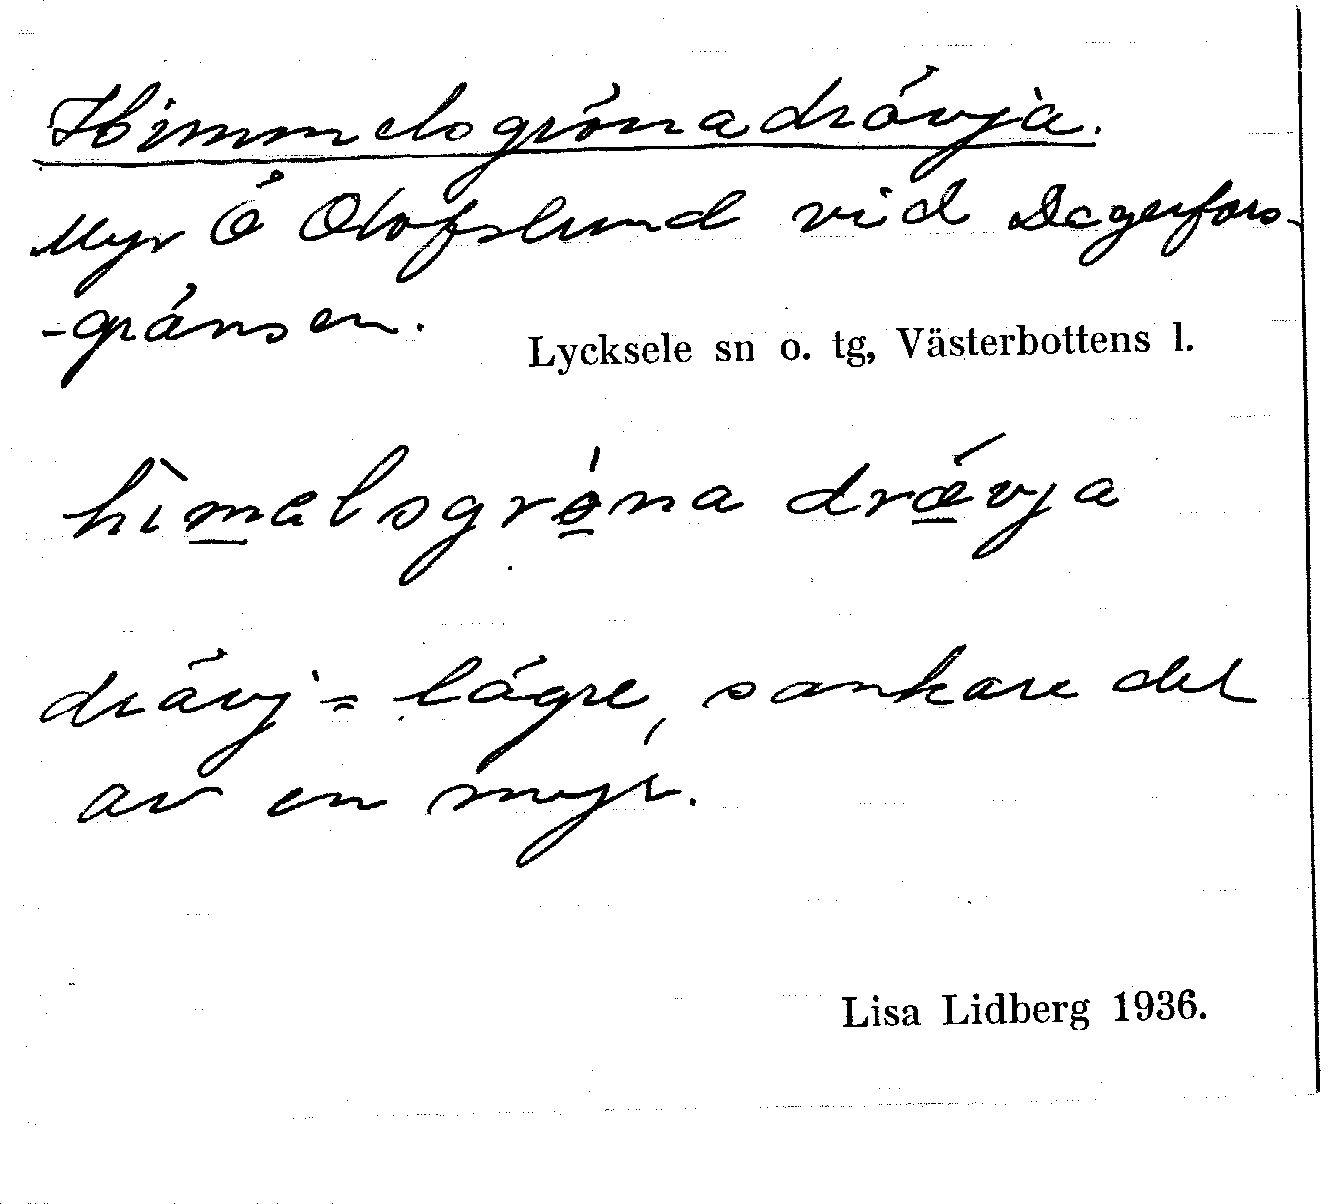 Himmelsgrönadrävja.
Myr Ö Olofslund vid Degerfors-
-gränsen.
Lycksele sn o. tg, Västerbottens l.
hìmelsgrǿna drǽvja
drävj = lägre, sankare del
av en myr.
Lisa Lidberg 1936.